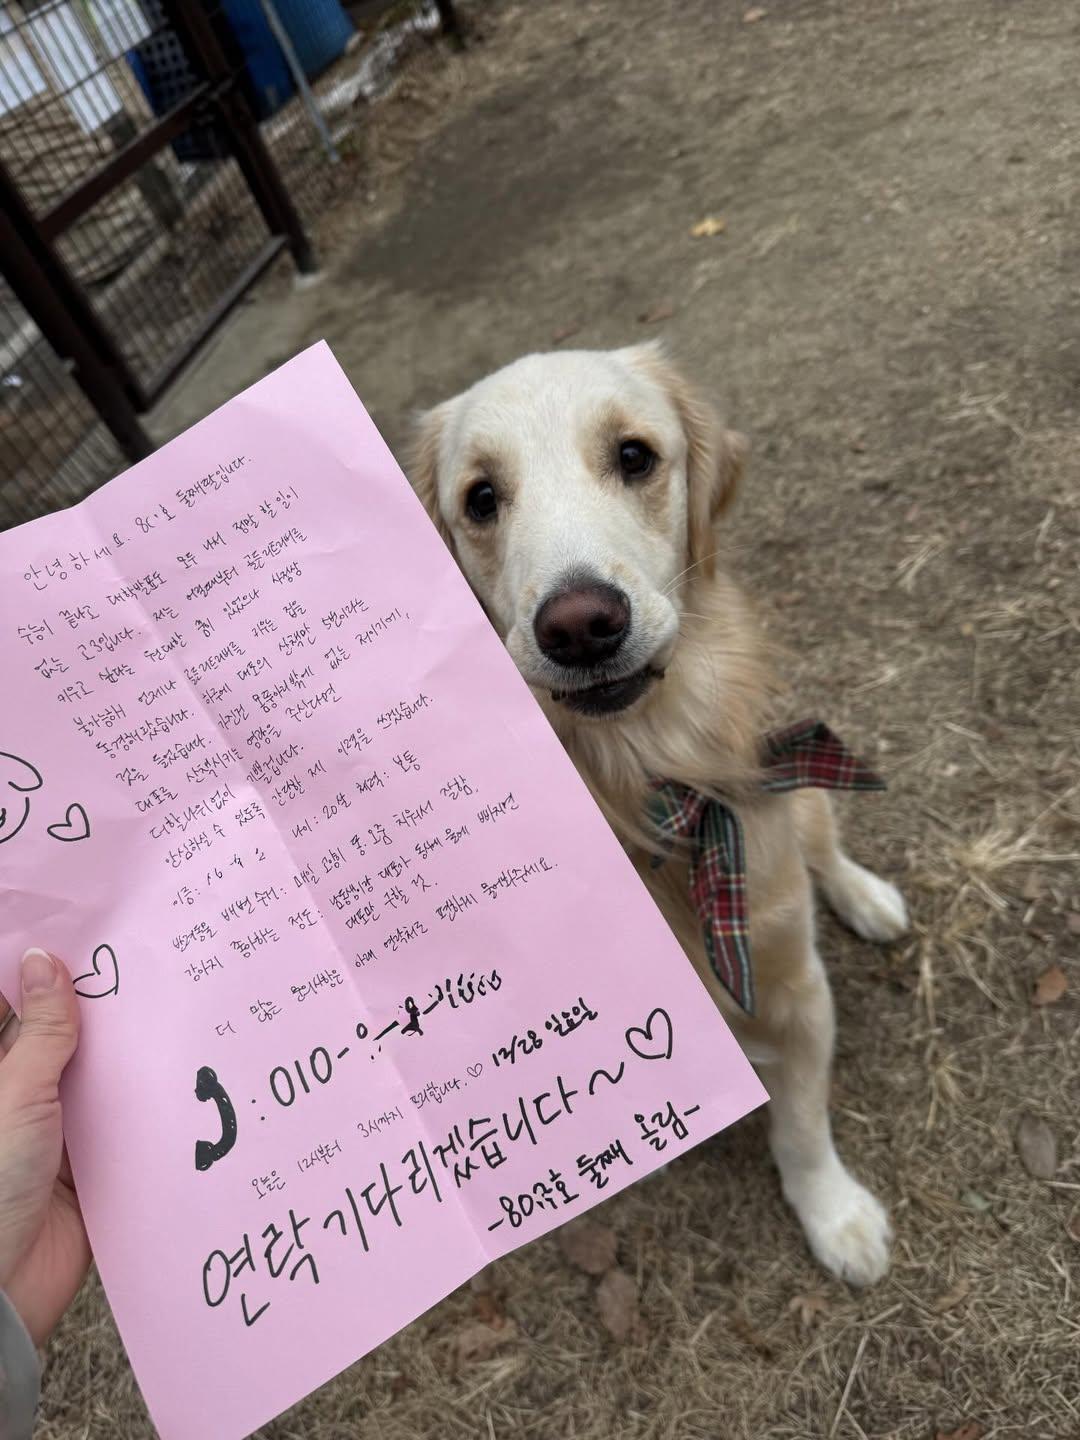 안녕하세요. 80 호 둘째딸입니다.
수능이 끝나고 대학발표도 모두 나서 정말 할 일이
없는 고3입니다. 저는 어릴때부터 골든리트리버를
키우고 싶다는 원대한 꿈이 있었으나 사정상
불가능해 언제나 골든리트리버를 키우는 집을
동경해왔습니다. 하루에 대포의 산책만 5번이라는
것을 들었습니다. 가진건 몸뚱아리밖에 없는 저이기에,
대포를 산책시키는 영광을 주신다면
더할나위없이 기쁠겁니다.
안심하실 수 있도록 간단한 제 이력을 쓰겠습니다.
이름: 나이: 20살 체력: 보통
반려동물 배변 수거: 매일 고양이 똥.오줌 치워서 잘함.
강아지 좋아하는 정도: 남동생이랑 대포가 동시에 물에 빠지면
대포만 구할 것.
더 많은 문의사항은 아래 연락처로 편하게 물어봐주세요.
: 010-
오늘은 12시부터 3시까지 프리합니다.♡ 12/28 일요일
연락 기다리겠습니다~♡
-80 호 둘째 올림-